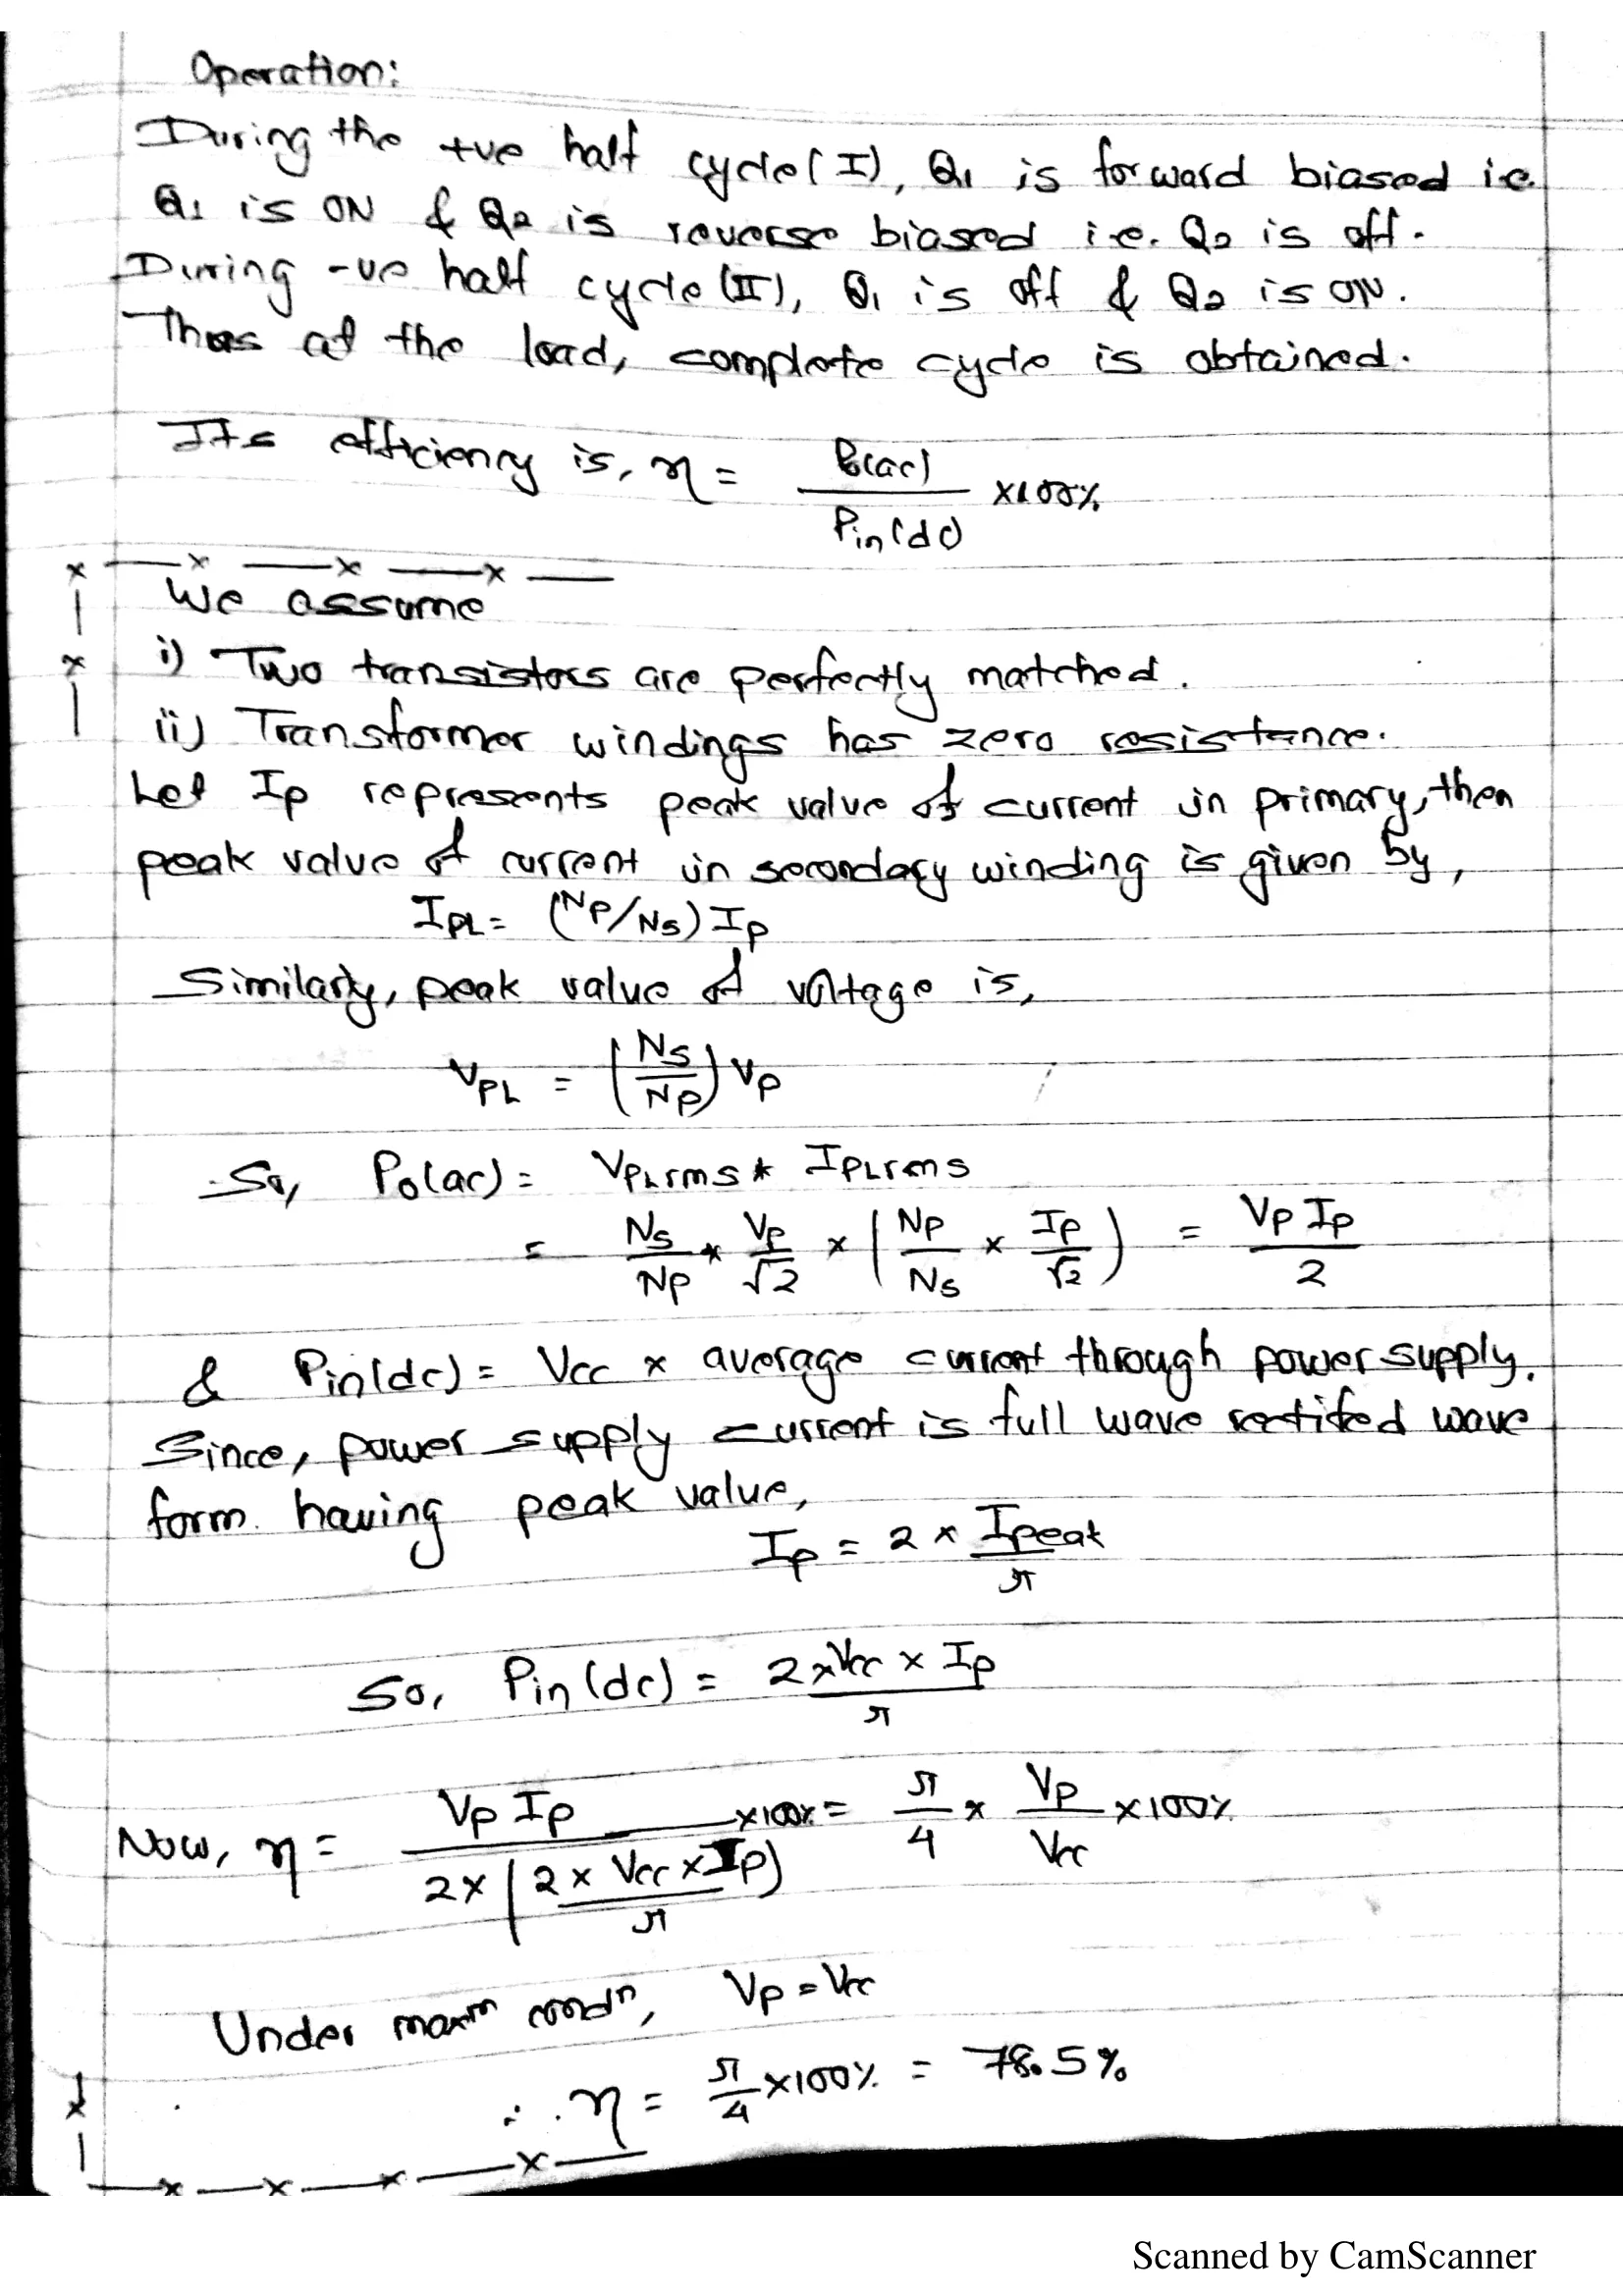 Operation:
During the +ve half cycle(I), Q1 is forward biased i.e.
Q1 is ON & Q2 is reverse biased i.e. Q2 is off.
During -ve half cycle(II), Q1 is off & Q2 is ON.
Thus at the load, complete cycle is obtained.
Its efficiency is, η = Po(ac) / Pin(dc) ×100%
We assume
i) Two transistors are perfectly matched.
ii) Transformer windings has zero resistance.
Let Ip represents peak value of current in primary, then
peak value of current in secondary winding is given by,
IPL = (NP/NS) Ip
Similarly, peak value of voltage is,
VPL = (NS/NP) Vp
So, Po(ac) = VPLrms * IPLrms
= NS/NP * Vp/√2 × (NP/NS × Ip/√2) = Vp Ip / 2
& Pin(dc) = Vcc × average current through power supply.
Since, power supply current is full wave rectified wave
form having peak value,
Ip = 2 × Ipeak / π
So, Pin(dc) = 2×Vcc × Ip / π
Now, η = Vp Ip / 2×(2 × Vcc × Ip / π) ×100% = π/4 × Vp/Vcc ×100%
Under maxm condn, Vp = Vcc
∴ η = π/4 ×100% = 78.5%
Scanned by CamScanner